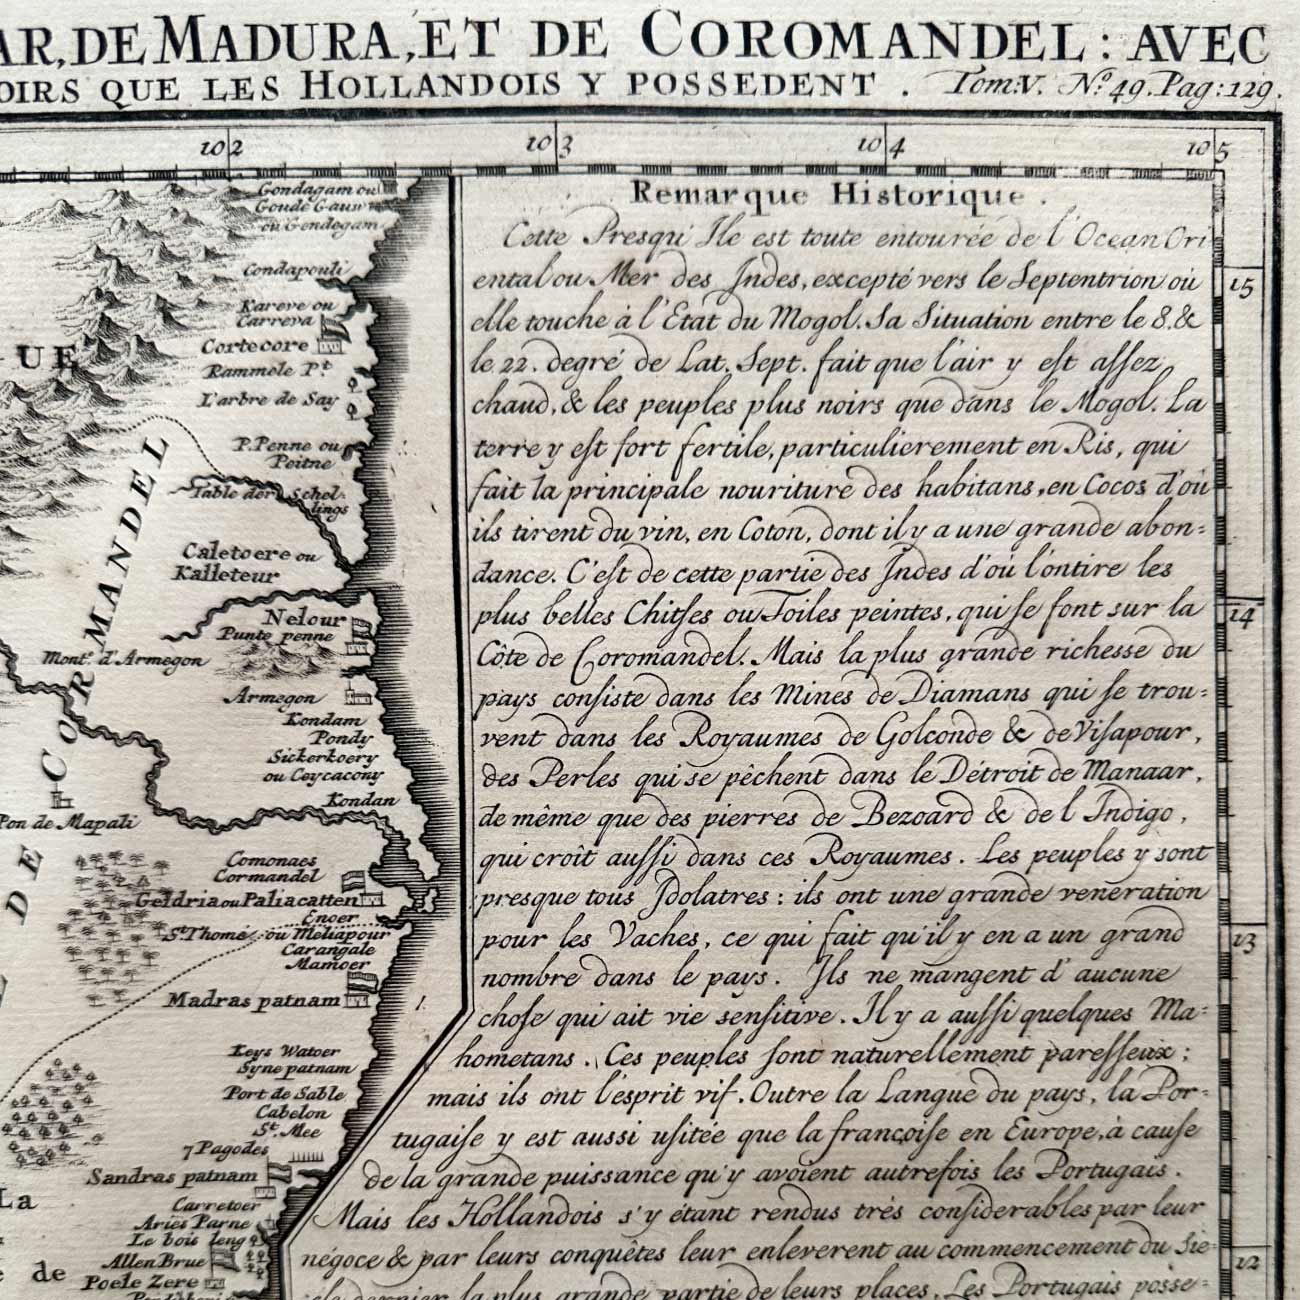 AR, DE MADURA, ET DE COROMANDEL: AVEC
OIRS QUE LES HOLLANDOIS Y POSSEDENT. Tom:V. No. 49. Pag: 129.
102
103
104
105
Gondagam ou
Goude Gauw
ou Gendegam
Condapouli
Kareve ou
Carreva
Cortecore
Rammele Pt.
L'arbre de Say
P. Penne ou
Peitne
Table der Schel-
lings
Caletoere ou
Kalleteur
Nelour
Punte penne
Mont. d'Armegon
Armegon
Kondam
Pondy
Sickerkoery
ou Ceycacony
Kondan
Pon de Mapali
Comonaes
Cormandel
Geldria ou Paliacatten
Enoer
St. Thome ou Meliapour
Carangale
Mamoer
Madras patnam
Keys Watoer
Syne patnam
Port de Sable
Cabelon
St. Mee
7 Pagodes
Sandras patnam
Carretoer
Aries Parne
Le bois leng
Allen Brue
Poele Zere
UE
DE CORMANDEL
La
de
15
14
13
12
Remarque Historique.
Cette Presqu'Ile est toute entourée de l'Ocean Ori
ental ou Mer des Indes, excepté vers le Septentrion où
elle touche à l'Etat du Mogol. Sa Situation entre le 8. &
le 22. degré de Lat. Sept. fait que l'air y est assez
chaud, & les peuples plus noirs que dans le Mogol. La
terre y est fort fertile, particulierement en Ris, qui
fait la principale nouriture des habitans, en Cocos d'où
ils tirent du vin, en Coton, dont il y a une grande abon=
dance. C'est de cette partie des Indes d'où l'on tire les
plus belles Chitses ou Toiles peintes, qui se font sur la
Côte de Coromandel. Mais la plus grande richesse du
pays consiste dans les Mines de Diamans qui se trou=
vent dans les Royaumes de Golconde & de Visapour,
des Perles qui se pêchent dans le Détroit de Manaar,
de même que des pierres de Bezoard & de l'Indigo,
qui croît aussi dans ces Royaumes. Les peuples y sont
presque tous Idolatres: ils ont une grande veneration
pour les Vaches, ce qui fait qu'il y en a un grand
nombre dans le pays. Ils ne mangent d'aucune
chose qui ait vie sensitive. Il y a aussi quelques Ma=
hometans. Ces peuples sont naturellement paresseux;
mais ils ont l'esprit vif. Outre la Langue du pays, la Por=
tugaise y est aussi usitée que la françoise en Europe, à cause
de la grande puissance qu'y avoient autrefois les Portugais.
Mais les Hollandois s'y étant rendus très considerables par leur
négoce & par leurs conquêtes leur enleverent au commencement du Sie=
cle dernier la plus grande partie de leurs places. Les Portugais posse=